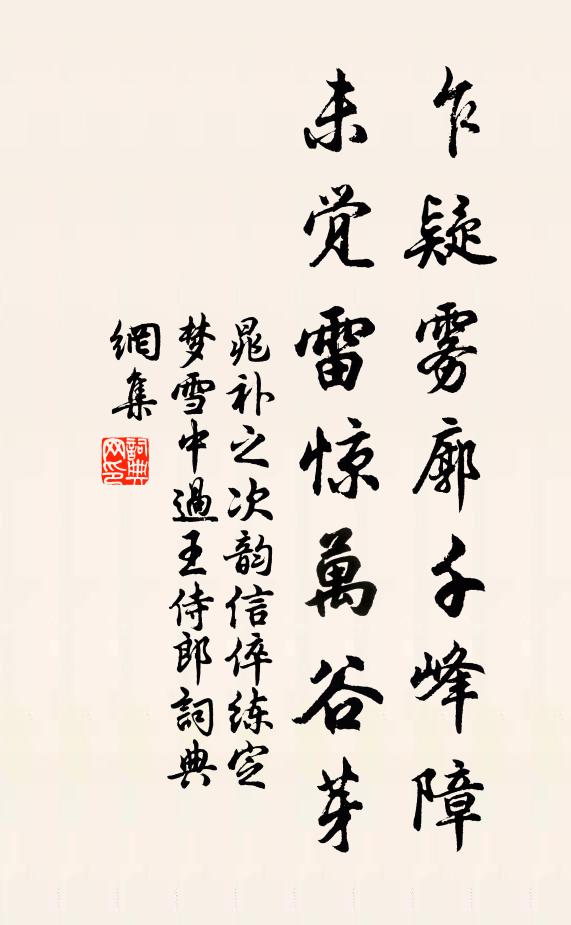 乍疑雾廓千峰障
未觉雷惊萬谷芽
晁补之次韵信倅练定
梦雪中過王侍郎詞典
網集
詞典网印